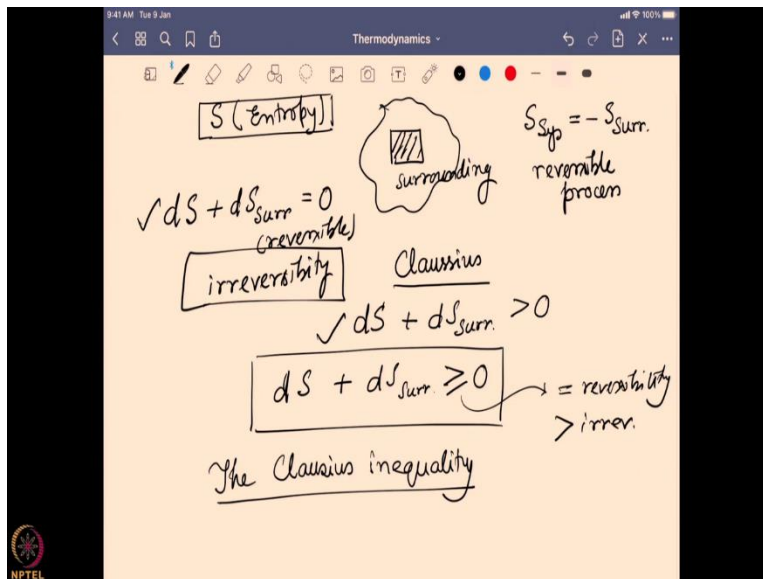 9:41 AM Tue 9 Jan
100%
Thermodynamics
S (Entropy)
surrounding
S_Sys = - S_Surr.
reversible
process
✓ dS + dS_Surr = 0
(reversible)
irreversibity
Claussius
✓ dS + dS_Surr. > 0
dS + dS_Surr. ≥ 0
= reversibility
> irrev.
The Clausius inequality
NPTEL